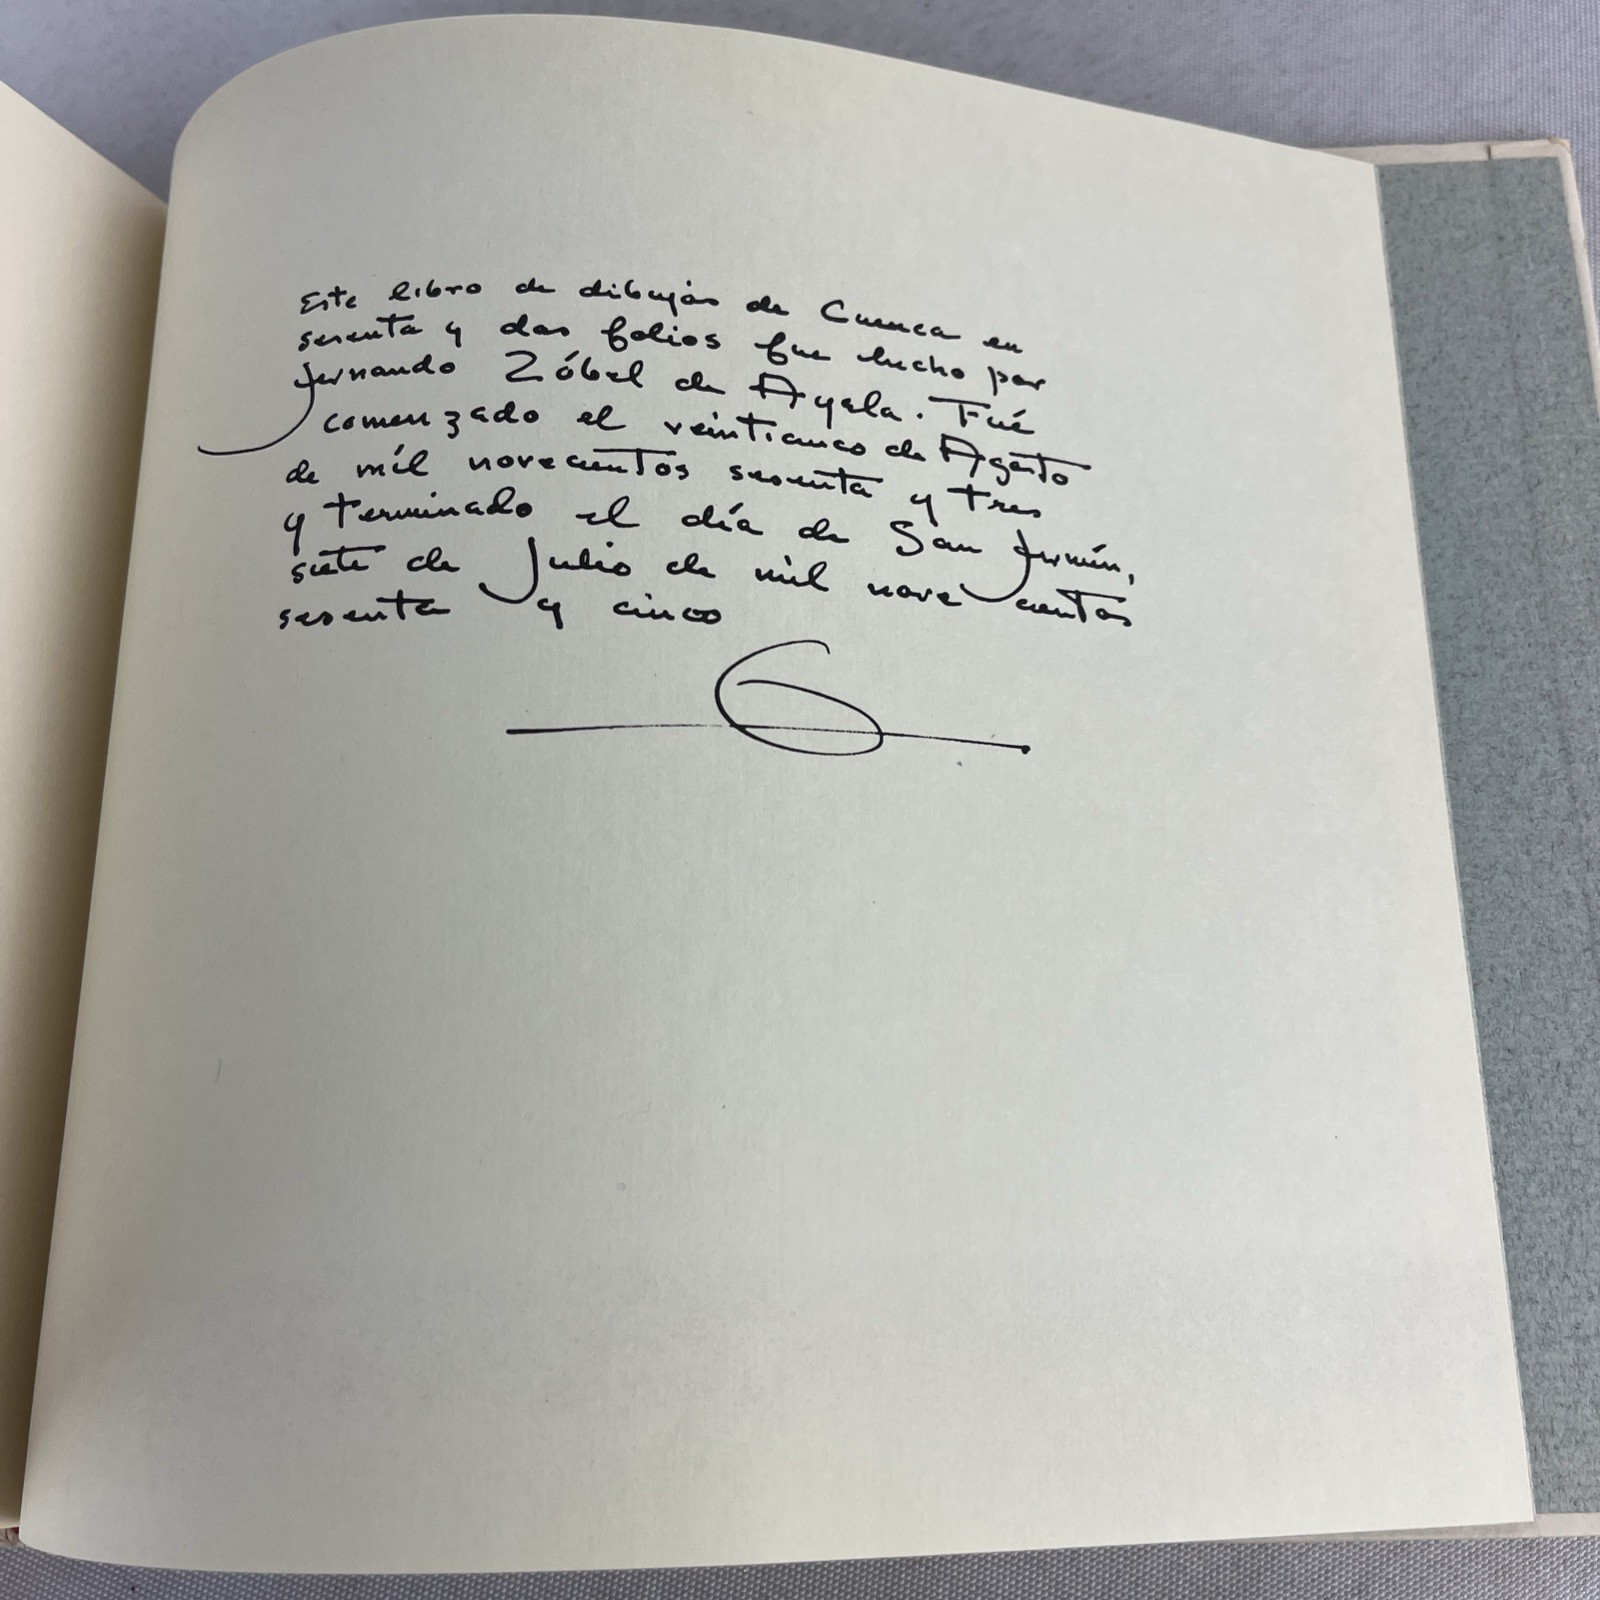 Este libro de dibujos de Cuenca en
sesenta y dos folios fue hecho por
Fernando Zóbel de Ayala. Fué
comenzado el veinticinco de Agosto
de mil novecientos sesenta y tres
y terminado el día de San Fermín,
siete de Julio de mil novecientos
sesenta y cinco